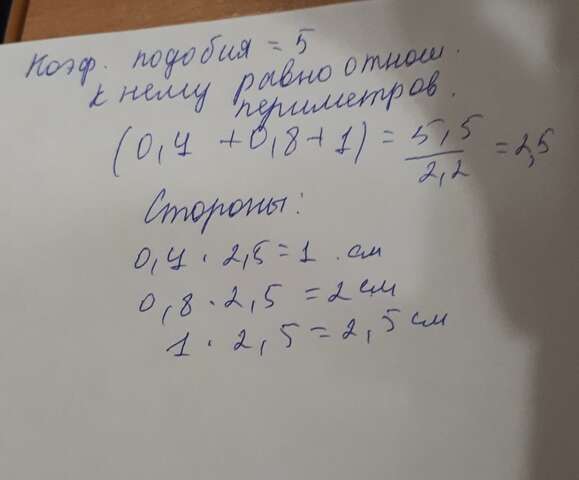 Коэф. подобия = 5
к нему равно отнош.
периметров.
(0,4 + 0,8 + 1) = 5,5/2,2 = 2,5
Стороны:
0,4 · 2,5 = 1 см
0,8 · 2,5 = 2 см
1 · 2,5 = 2,5 см